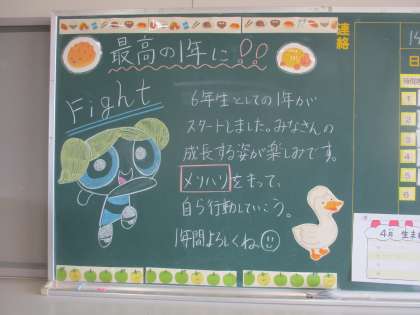 最高の1年に!!
Fight
6年生としての1年が
スタートしました。みなさんの
成長する姿が楽しみです。
メリハリをもって、
自ら行動していこう。
1年間よろしくね
連絡
日
1
2
3
4
5
6
4月 生まれ